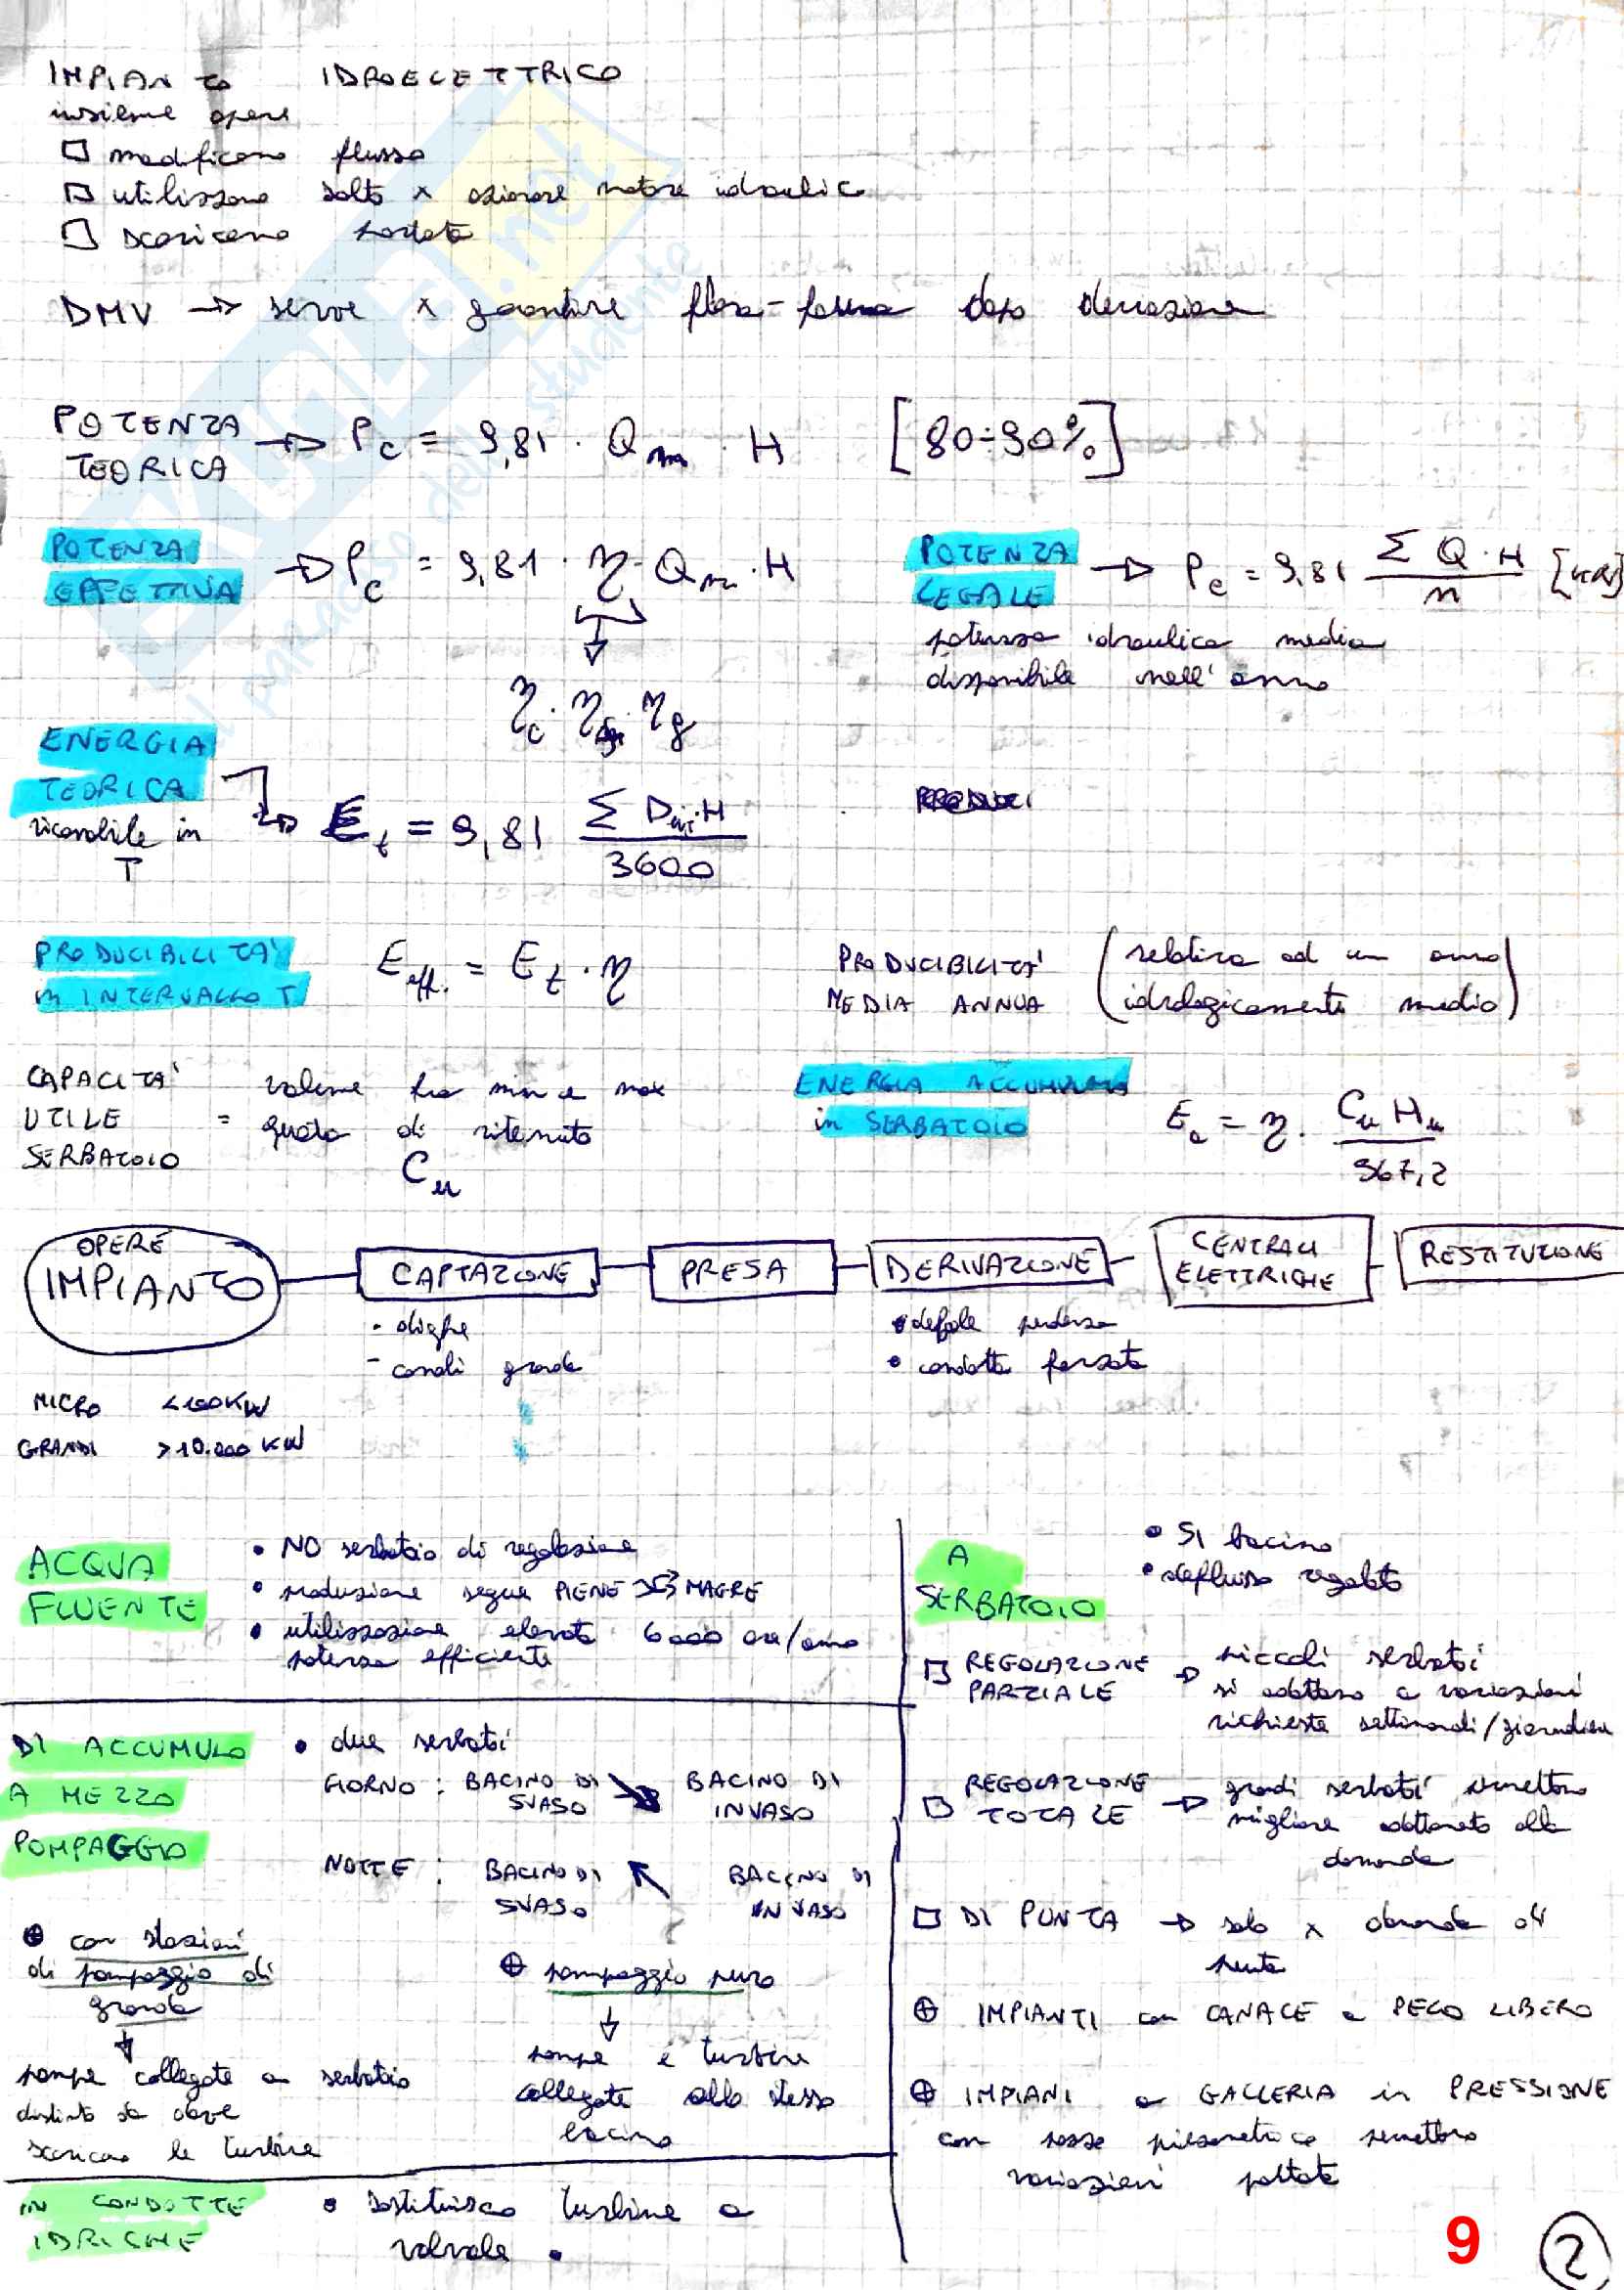 IMPIANTO IDROELETTRICO
insieme opere
□ modificano flusso
□ utilizzano salto x azionare motore idraulico
□ scaricano portata
DMV → serve x garantire flora-fauna dopo derivazione
POTENZA
TEORICA → Pc = 9,81 · Qm · H [80÷90%]
POTENZA
EFFETTIVA → Pc = 9,81 · η · Qm · H
ηc · · ηg
POTENZA
LEGALE → Pe = 9,81 Σ Q · H / n [kW]
potenza idraulica media
disponibile nell'anno
ENERGIA
TEORICA
ricavabile in
T
Et = 9,81 Σ · H / 3600
PRODUCIBILITA'
in INTERVALLO T
Eeff. = Et · η
PRODUCIBILITA'
MEDIA ANNUA
(relativa ad un anno
idrologicamente medio)
CAPACITA'
UTILE
SERBATOIO
= volume tra min e max
quota di ritenuta
Cu
ENERGIA ACCUMULATA
in SERBATOIO
Ea = η · Cu Hu / 367,2
OPERE
IMPIANTO
CAPTAZIONE
PRESA
DERIVAZIONE
CENTRALI
ELETTRICHE
RESTITUZIONE
• dighe
- canali gronda
• debole pendenza
• condotta forzata
MICRO <100KW
GRANDI >10.000 KW
ACQUA
FLUENTE
• NO serbatoio di regolazione
• produzione segue PIENE MAGRE
• utilizzazione elevata 6000 ore/anno
potenza efficiente
A
SERBATOIO
• SI bacino
• deflusso regolato
□ REGOLAZIONE
PARZIALE → piccoli serbatoi
si adattano a variazioni
richieste settimanali/giornaliere
□ REGOLAZIONE
TOTALE → grandi serbatoi permettono
migliore adattamento alla
domanda
□ DI PUNTA → solo x domanda di
punta
⊕ IMPIANTI con CANALE a PELO LIBERO
⊕ IMPIANI a GALLERIA in PRESSIONE
con pozzo piezometrico permettono
variazioni portata
DI ACCUMULO
A MEZZO
POMPAGGIO
• due serbatoi
GIORNO : BACINO DI
SVASO
↘ BACINO DI
INVASO
NOTTE : BACINO DI
SVASO
↖ BACINO DI
INVASO
⊕ con stazioni
di pompaggio di
gronda
↓
pompe collegate a serbatoio
distinto da dove
scaricano le turbine
⊕ pompaggio puro
↓
pompe e turbine
collegate allo stesso
bacino
IN CONDOTTE
IDRICHE
• sostituisco turbine a
valvole •
9
2
.net
il paradiso dello studente